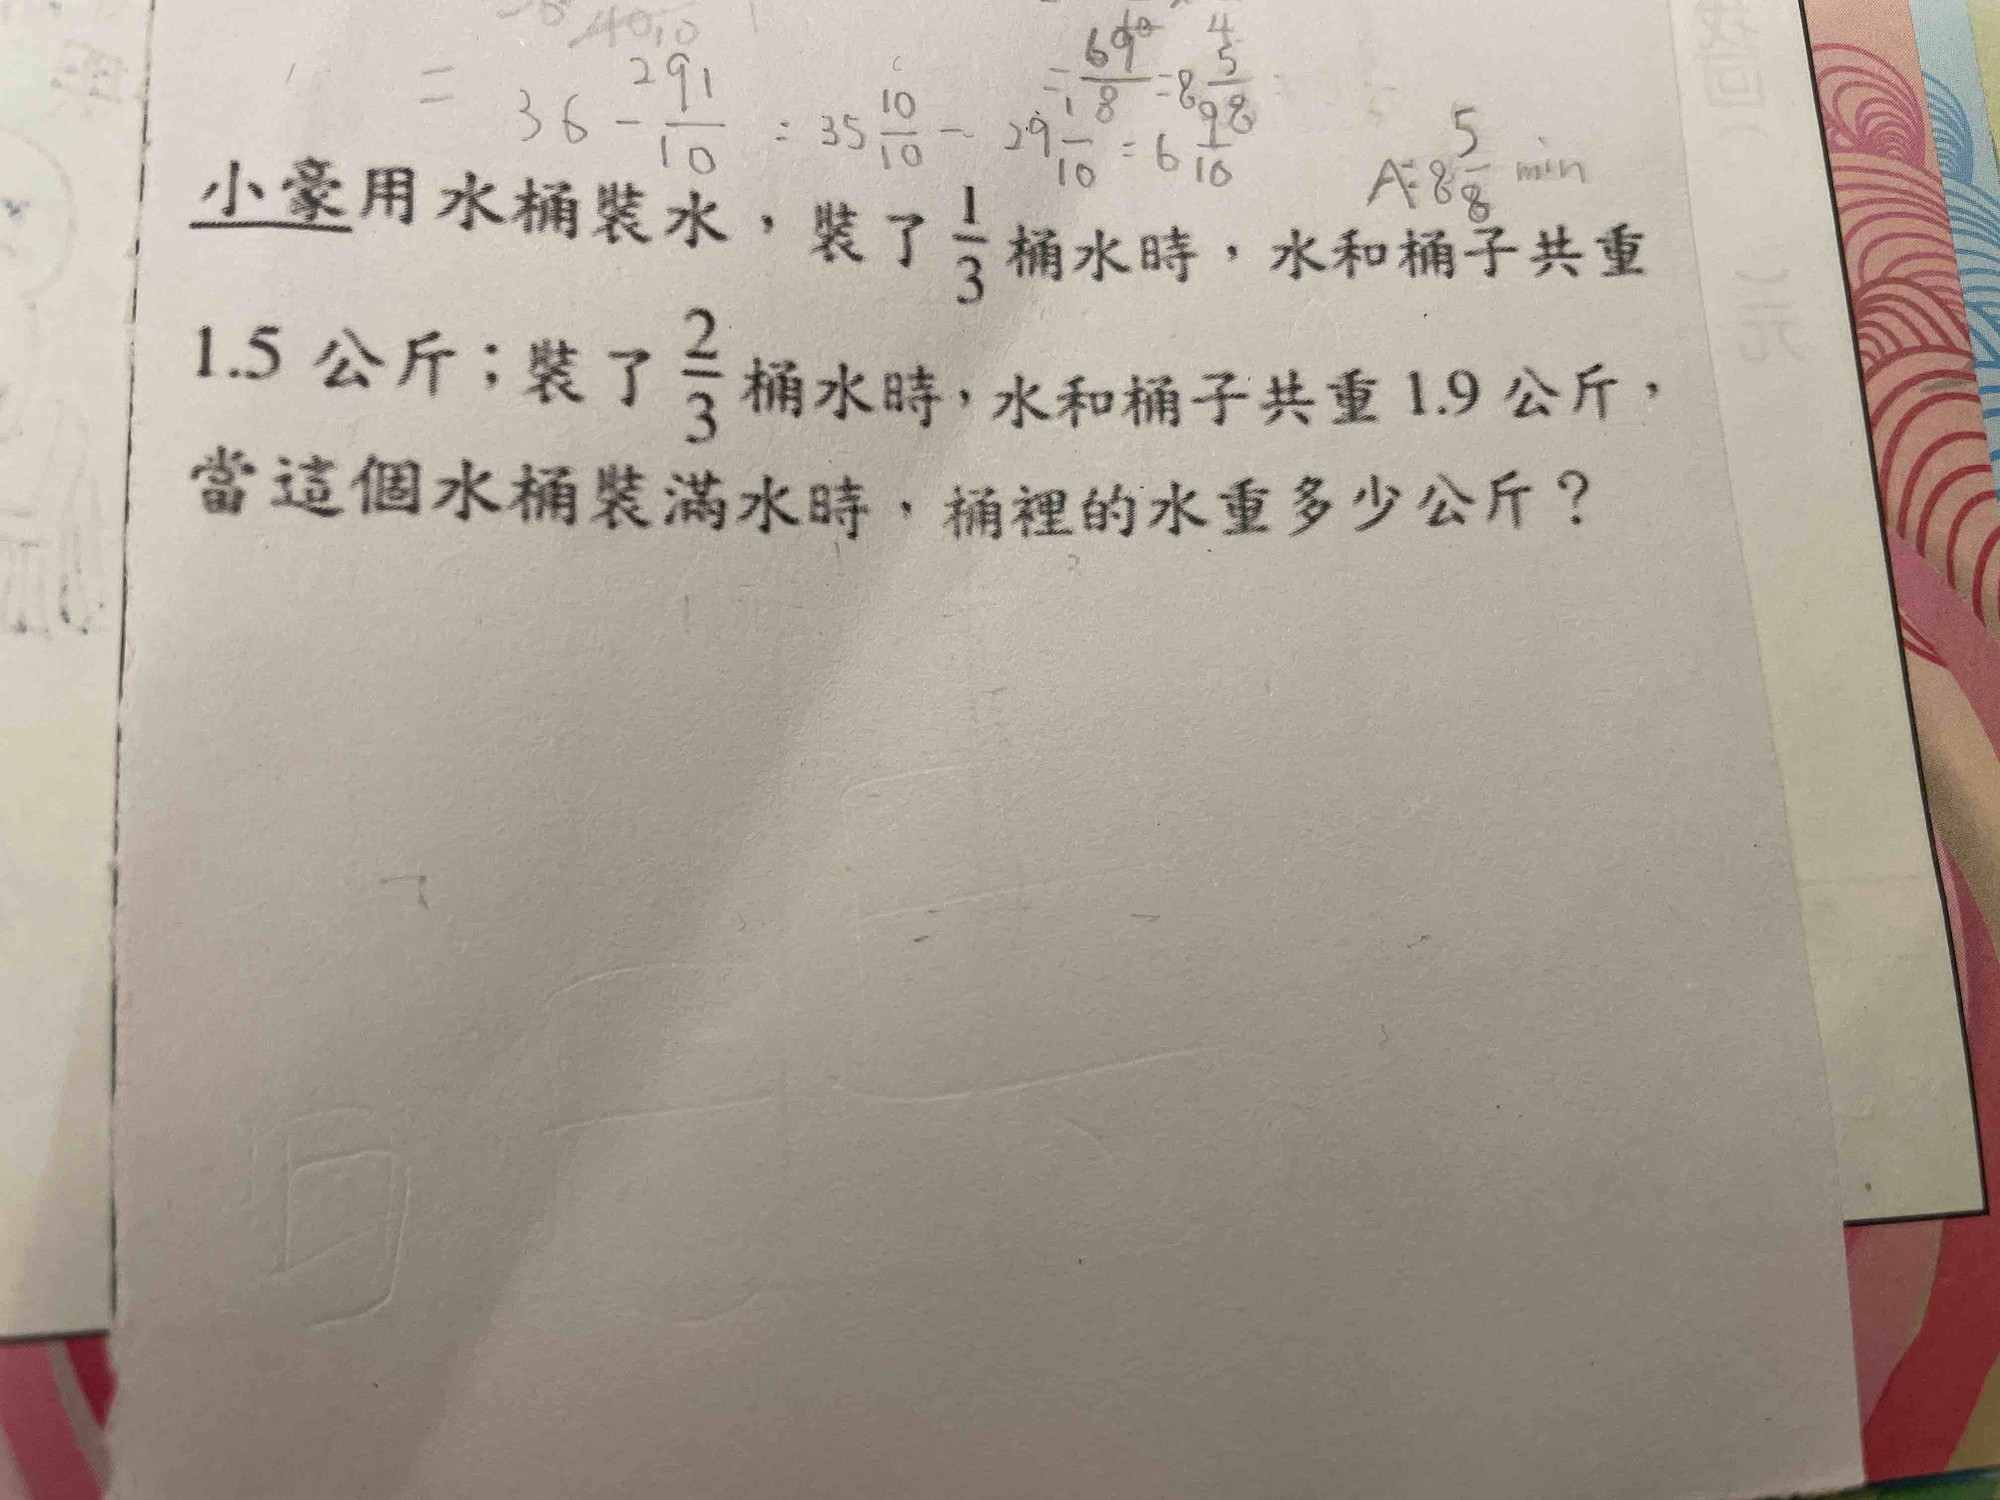 = 36 - 291/10 = 35 10/10 - 29 1/10 = 6 9/10
= 69/8 = 8 5/8
A: 8 5/8 min
小豪用水桶裝水，裝了 1/3 桶水時，水和桶子共重
1.5 公斤；裝了 2/3 桶水時，水和桶子共重 1.9 公斤，
當這個水桶裝滿水時，桶裡的水重多少公斤？